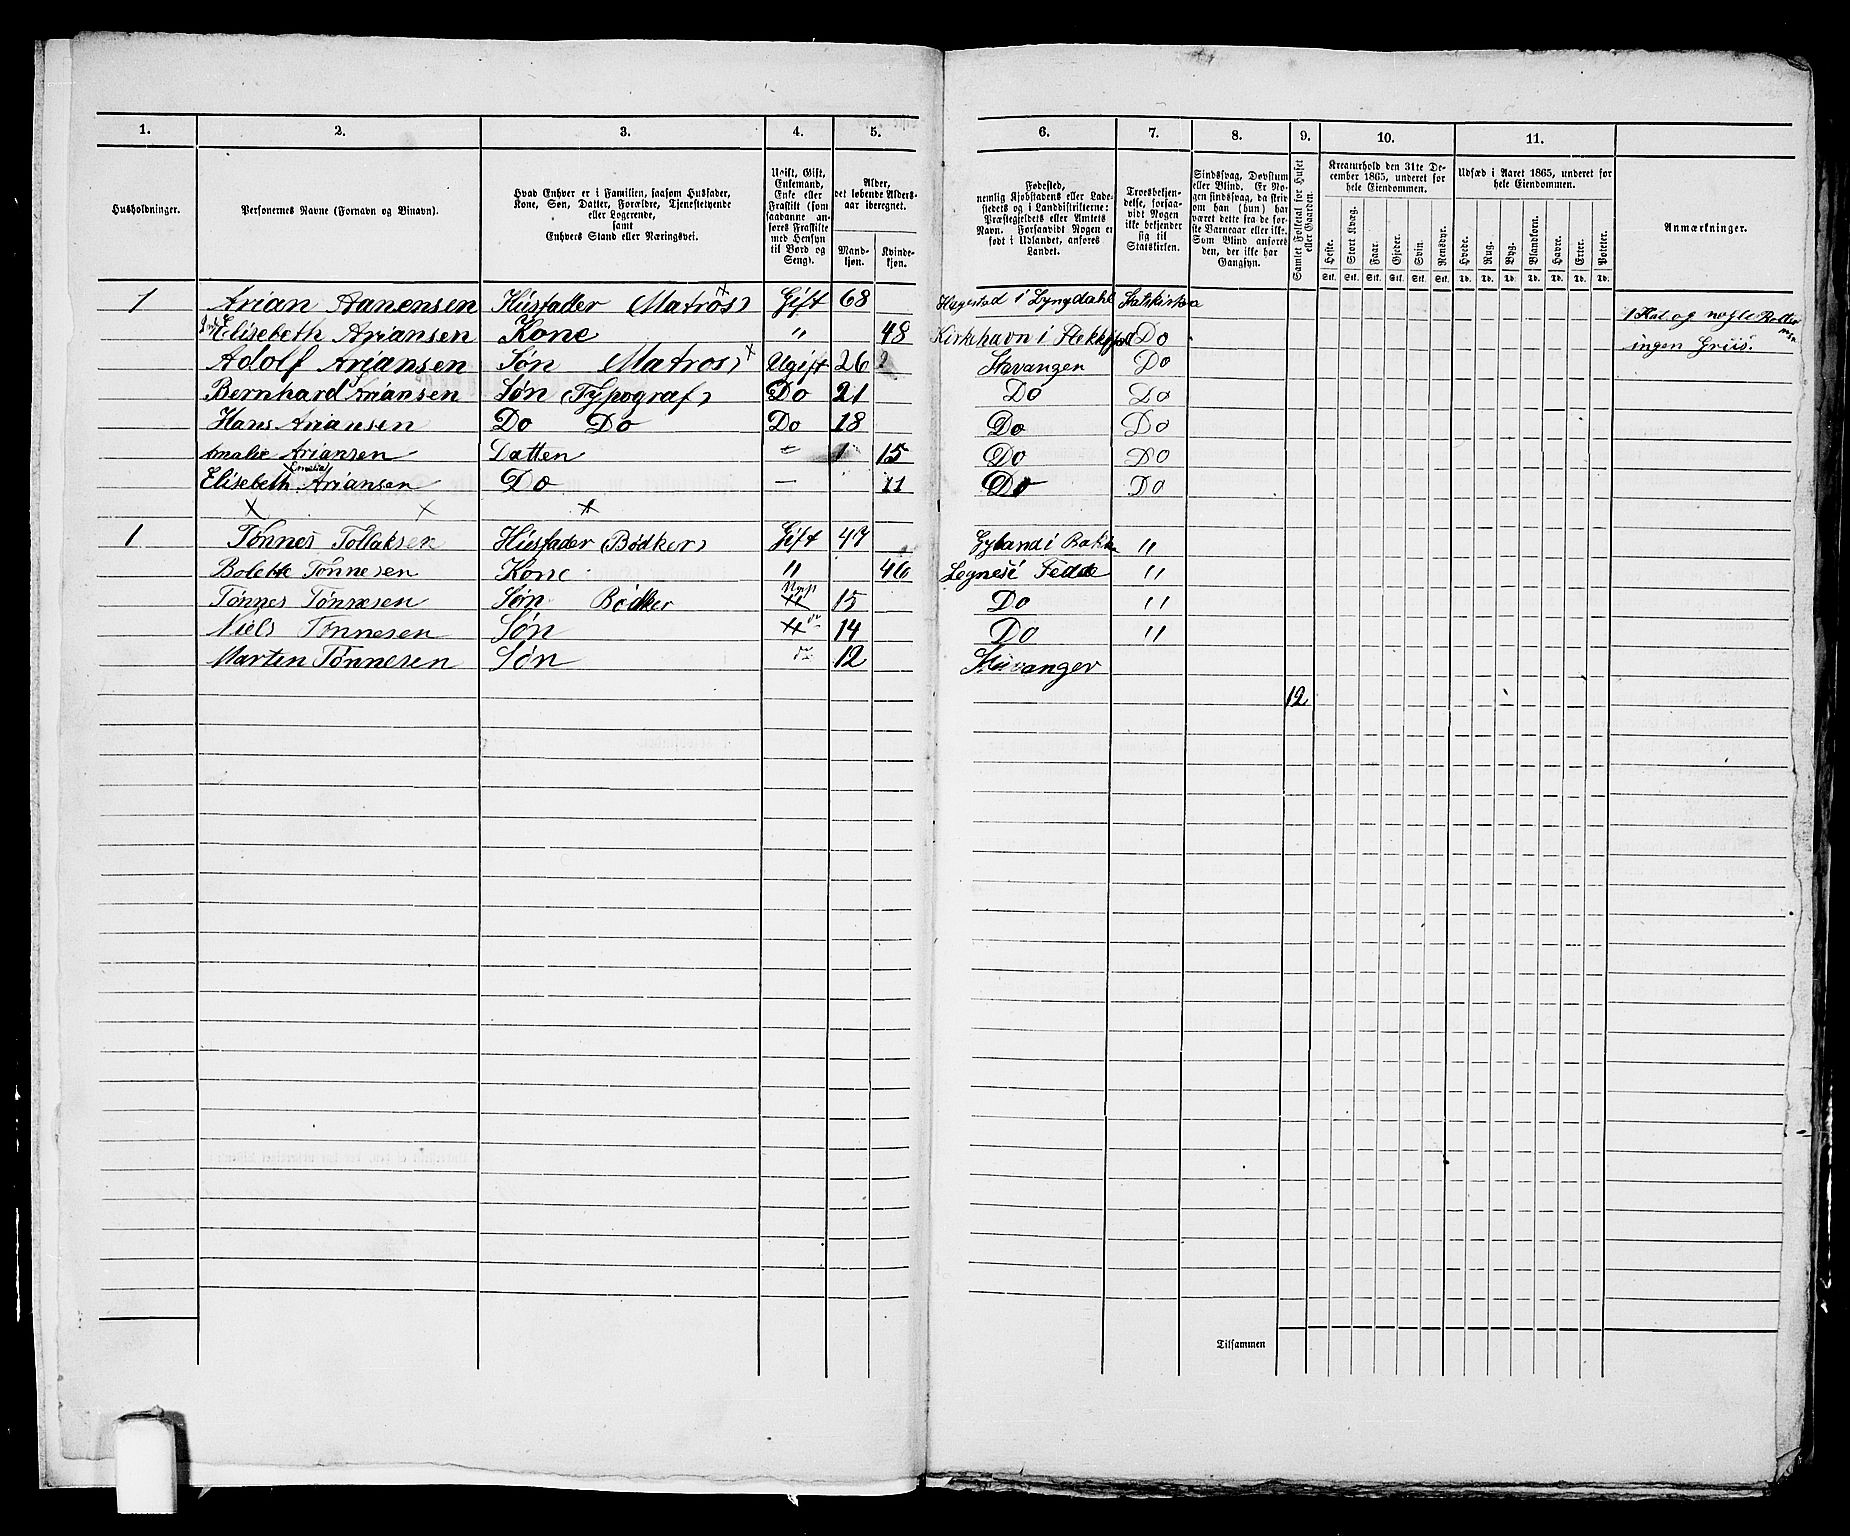 1. 2. 3. 4. 5. 6. 7. 8. 9. 10. 11.
Husholdninger.
Personernes Navne (Fornavn og Tilnavn).
Hvad Enhver er i Familien, saasom Husfader,
Kone, Søn, Datter, Forældre, Tjenestetyende
eller Logerende,
samt
Enhvers Stand eller Næringsvei.
Ugift, Gift,
Enkemand,
Enke eller
Fraskilt (som
saadanne an-
føres Fraskilte
med Hensyn
til Bord og
Seng).
Alder,
det løbende Alders-
aar iberegnet.
Mand-
kjøn.
Kvinde-
kjøn.
Fødested,
nemlig Kjøbstadens eller Lade-
stedets og i Landdistrikterne:
Præstegjeldets eller Amtets
Navn. Forsaavidt Nogen er
født i Udlandet, anføres
Landet.
Troesbekjen-
delse, forsaa-
vidt Nogen
ikke bekjender
sig til
Statskirken.
Sindssvag, Døvstum
eller Blind. Er No-
gen sindssvag, da skriv
om han (hun) har
været dette fra de før-
ste Barneaar eller ikke.
Som Blind anføres
den, der ikke har
Gangsyn.
Samlet Folketal for Huset
eller Gaarden.
Kreaturhold den 31te De-
cember 1865, underet for
hele Eiendommen.
Heste. Stort Kvæg. Faar. Gjeder. Svin. Rensdyr.
Stk. Stk. Stk. Stk. Stk. Stk.
Udsæd i Aaret 1865, underet for
hele Eiendommen.
Hvede. Rug. Byg. Blandkorn. Havre. Erter. Poteter.
Td. Td. Td. Td. Td. Td. Td.
Anmærkninger.
1 Arian Aanensen Husfader (Matros) Gift 68 Hagestad i Lyngdahl Statskirken
Elisebeth Ariansen Kone " 48 Kirkehavn i Flekkefj Do 1 Kat og nogle Rotter
Adolf Ariansen Søn Matros Ugift 26 Stavanger Do ingen Griis.
Bernhard Ariansen Søn (Typograf) Do 21 Do Do
Hans Ariansen Do Do Do 18 Do Do
Amalie Ariansen Datter 15 Do Do
Elisebeth Ariansen Do — 11 Do Do
1 Tønnes Tollaksen Husfader (Bødker) Gift 47 Gyland i Bakke "
Bolette Tønnesen Kone " 46 Legnesi Fedde "
Tønnes Tønnesen Søn Bødker 15 Do "
Niels Tønnesen Søn do 14 Do "
Marten Tønnesen Søn 12 Stavanger
12
Tilsammen